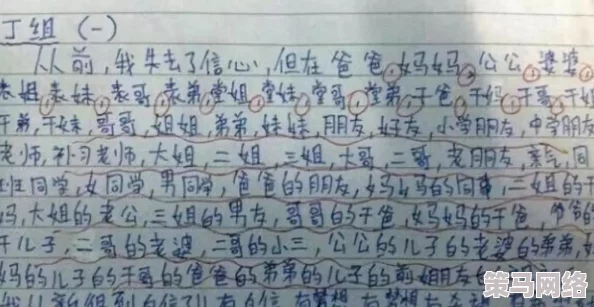 丁组（一）
从前,我失去了信心,但在爸爸,妈妈,公公,婆婆,
表姐,表妹,表哥,表弟,堂姐,堂妹,堂哥,堂弟,干爸,干妈,干哥,干姐
干弟,干妹,哥哥,姐姐,弟弟,妹妹,朋友,好友,小学朋友,中学朋友
老师,补习老师,大姐,二姐,三姐,大哥,二哥,老朋友,亲戚,同
性同学,女同学,男同学,爸爸的朋友,妈妈的同事,二姐的干
妈,大姐的老公,三姐的男友,哥哥的干爸,妈妈的干爸,爷爷的
干儿子,二哥的老婆,二哥的小三,公公的儿子的老婆的弟弟,
妈的儿子的干哥的爸爸的弟弟的儿子的前女朋友
策马网络